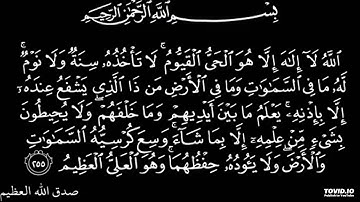 بِسْمِ اللَّهِ الرَّحْمَٰنِ الرَّحِيمِ
اللَّهُ لَا إِلَٰهَ إِلَّا هُوَ الْحَيُّ الْقَيُّومُ ۚ لَا تَأْخُذُهُ سِنَةٌ وَلَا نَوْمٌ ۚ
لَّهُ مَا فِي السَّمَاوَاتِ وَمَا فِي الْأَرْضِ ۗ مَن ذَا الَّذِي يَشْفَعُ عِندَهُ
إِلَّا بِإِذْنِهِ ۚ يَعْلَمُ مَا بَيْنَ أَيْدِيهِمْ وَمَا خَلْفَهُمْ ۖ وَلَا يُحِيطُونَ
بِشَيْءٍ مِّنْ عِلْمِهِ إِلَّا بِمَا شَاءَ ۚ وَسِعَ كُرْسِيُّهُ السَّمَاوَاتِ
وَالْأَرْضَ ۖ وَلَا يَئُودُهُ حِفْظُهُمَا ۚ وَهُوَ الْعَلِيُّ الْعَظِيمُ ٢٥٥
صدق الله العظيم
TOVID.IO